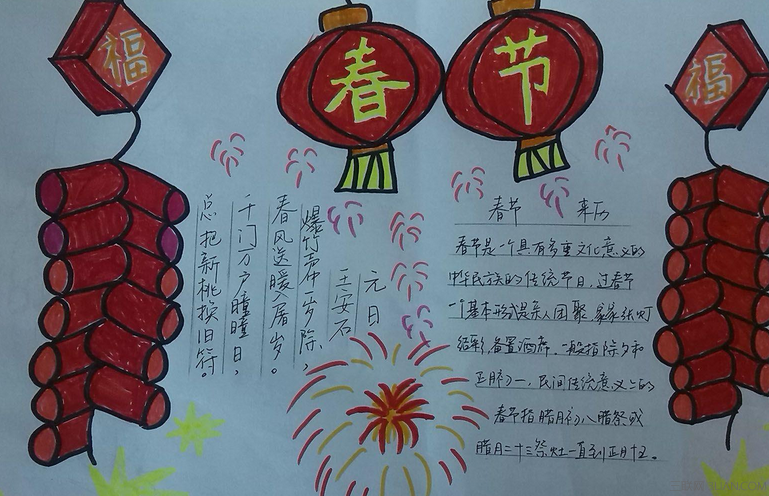 福
春节
福
元日
王安石
爆竹声中一岁除，
春风送暖入屠苏。
千门万户瞳瞳日，
总把新桃换旧符。
春节 来历
春节是一个具有多重文化意义的
中华民族的传统节日，过春节
一个基本形式是亲人团聚，家家张灯
结彩，备置酒席，一般指除夕和
正月初一，民间传统意义上的
春节指腊月初八腊祭或
腊月二十三祭灶一直到正月十五。